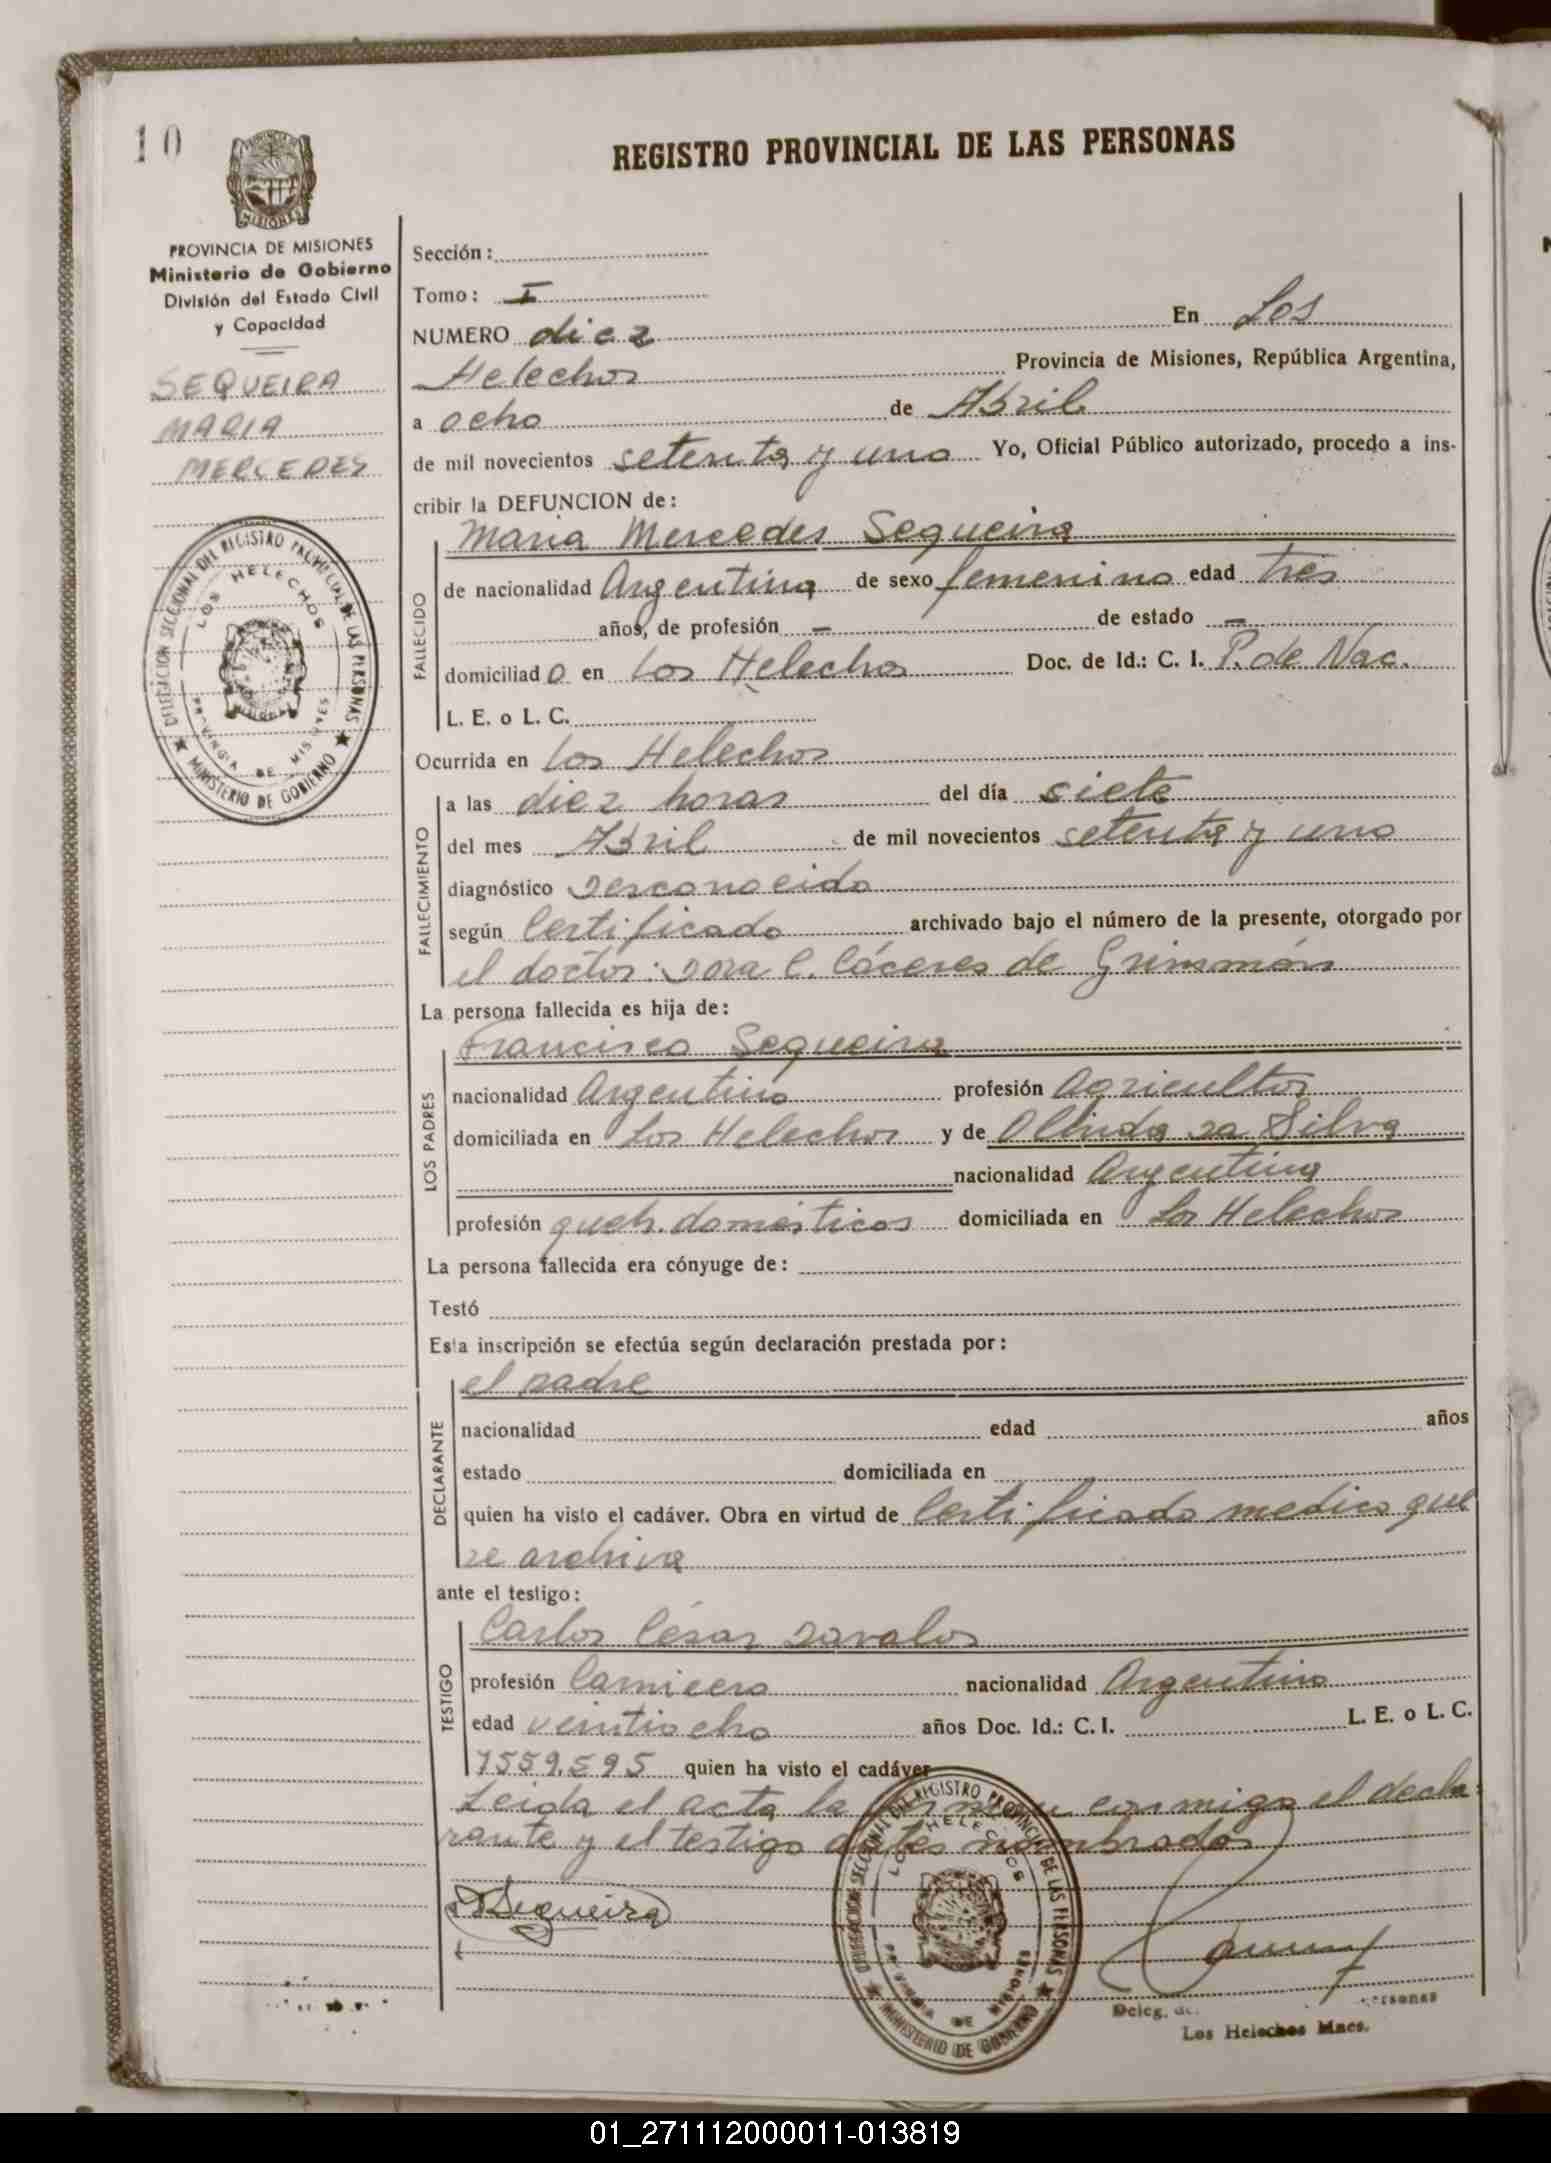 10
MISIONES
PROVINCIA DE MISIONES
Ministerio de Gobierno
División del Estado Civil
y Capacidad
SEQUEIRA
MARIA
MERCEDES
DELEGACION SECCIONAL DEL REGISTRO PROVINCIAL DE LAS PERSONAS
LOS HELECHOS
PROVINCIA DE MISIONES
MINISTERIO DE GOBIERNO
REGISTRO PROVINCIAL DE LAS PERSONAS
Sección:
Tomo: I
NUMERO diez En Los
Helechos Provincia de Misiones, República Argentina,
a ocho de Abril
de mil novecientos setenta y uno Yo, Oficial Público autorizado, procedo a ins-
cribir la DEFUNCION de:
FALLECIDO
Maria Mercedes Sequeira
de nacionalidad Argentina de sexo femenino edad tres
años, de profesión — de estado —
domiciliad o en Los Helechos Doc. de Id.: C. I. P. de Nac.
L. E. o L. C.
Ocurrida en Los Helechos
FALLECIMIENTO
a las diez horas del día siete
del mes Abril de mil novecientos setenta y uno
diagnóstico desconocido
según Certificado archivado bajo el número de la presente, otorgado por
el doctor: Dora C. Cáceres de
La persona fallecida es hija de:
LOS PADRES
Francisco Sequeira
nacionalidad Argentino profesión Agricultor
domiciliada en Los Helechos y de Olinda da Silva
nacionalidad Argentina
profesión queh. domésticos domiciliada en Los Helechos
La persona fallecida era cónyuge de:
Testó
Esta inscripción se efectúa según declaración prestada por:
DECLARANTE
el padre
nacionalidad edad años
estado domiciliada en
quien ha visto el cadáver. Obra en virtud de Certificado medico que
se archiva
ante el testigo:
TESTIGO
Carlos César Davalos
profesión Carnicero nacionalidad Argentino
edad veintiocho años Doc. Id.: C. I. L. E. o L. C.
7559.595 quien ha visto el cadáver
Leida el acta la firman conmigo el decla-
rante y el testigo antes nombrados
Sequeira
DELEGACION SECCIONAL DEL REGISTRO PROVINCIAL DE LAS PERSONAS
LOS HELECHOS
PROVINCIA DE MISIONES
MINISTERIO DE GOBIERNO
Deleg. de personas
Los Helechos Mnes.
01_271112000011-013819